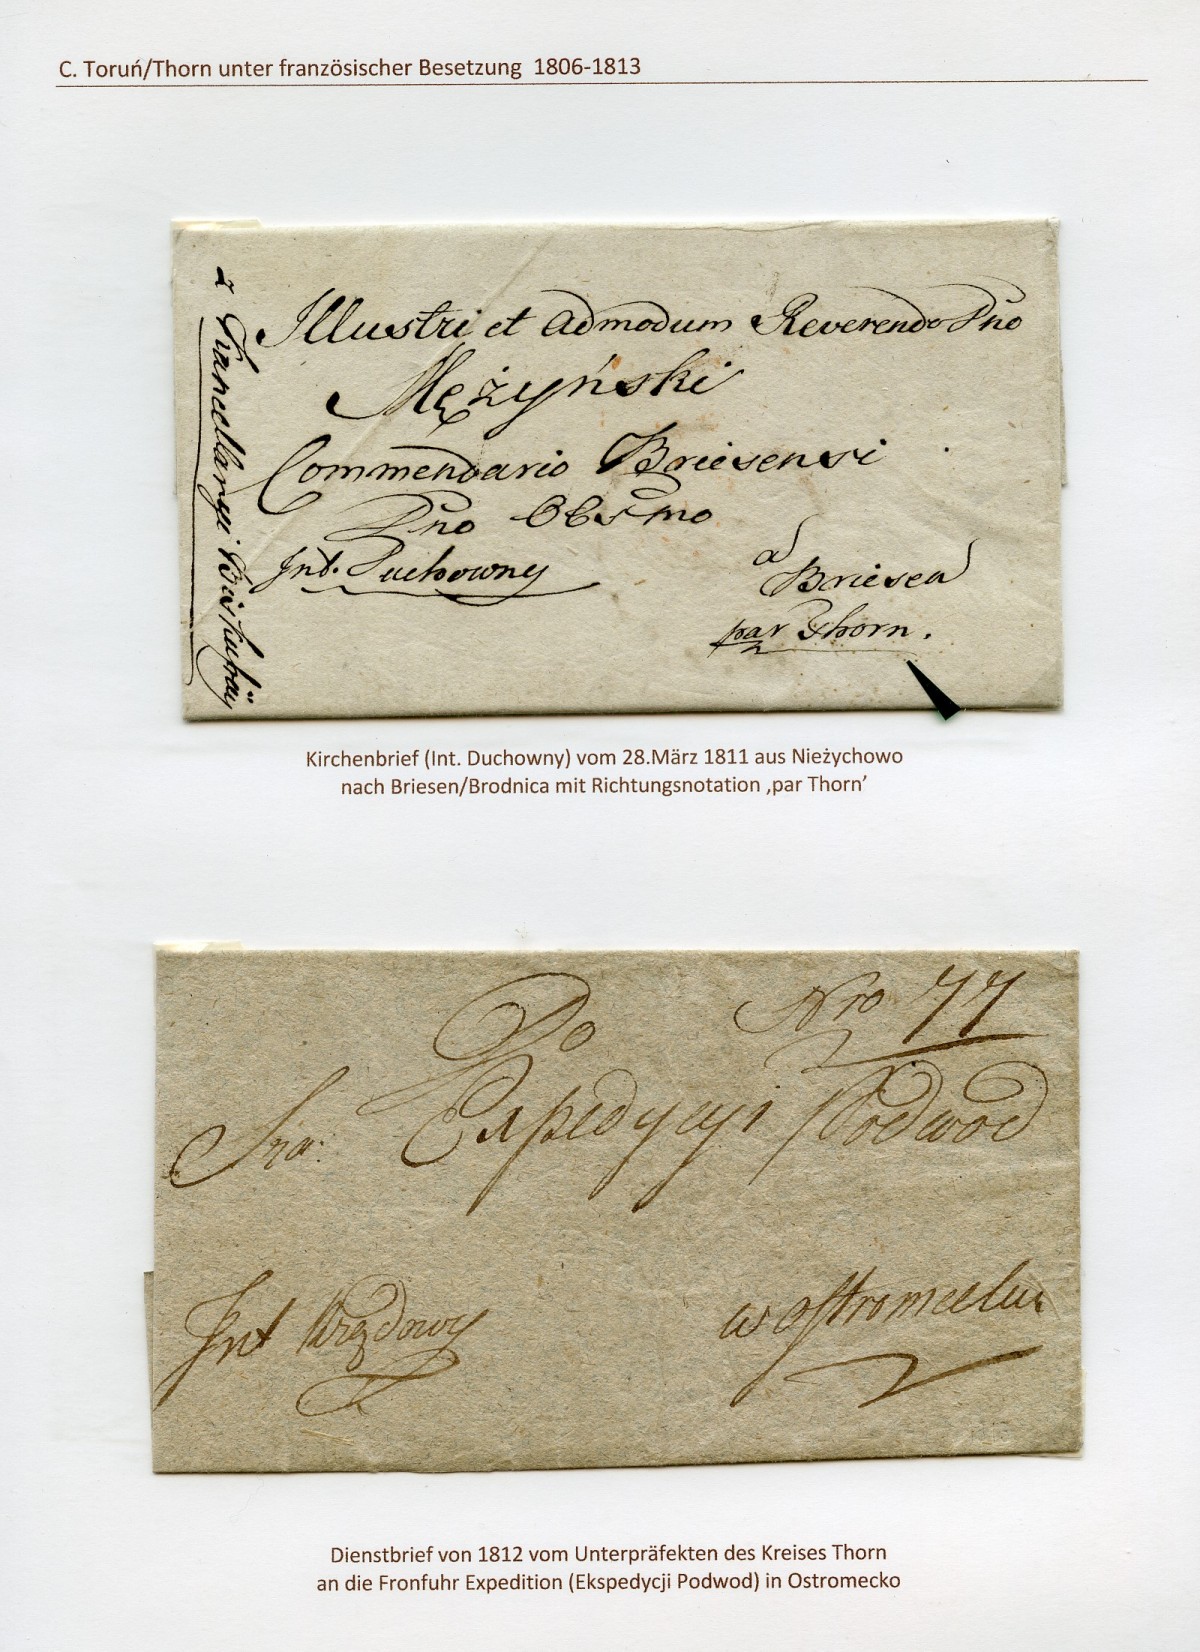 C. Toruń/Thorn unter französischer Besetzung 1806-1813
Illustri et admodum Reverendo Dno
Mężyński
Commendario Briesensi
Dno Obsmo
Int. Duchowny
a
Briesen
par Thorn.
z Kancellaryi Biskupiy
Kirchenbrief (Int. Duchowny) vom 28.März 1811 aus Nieżychowo
nach Briesen/Brodnica mit Richtungsnotation ‚par Thorn’
Nro 77
Do
Expedycyi Podwod
Int Urzędowy
w Ostromecku
Dienstbrief von 1812 vom Unterpräfekten des Kreises Thorn
an die Fronfuhr Expedition (Ekspedycji Podwod) in Ostromecko